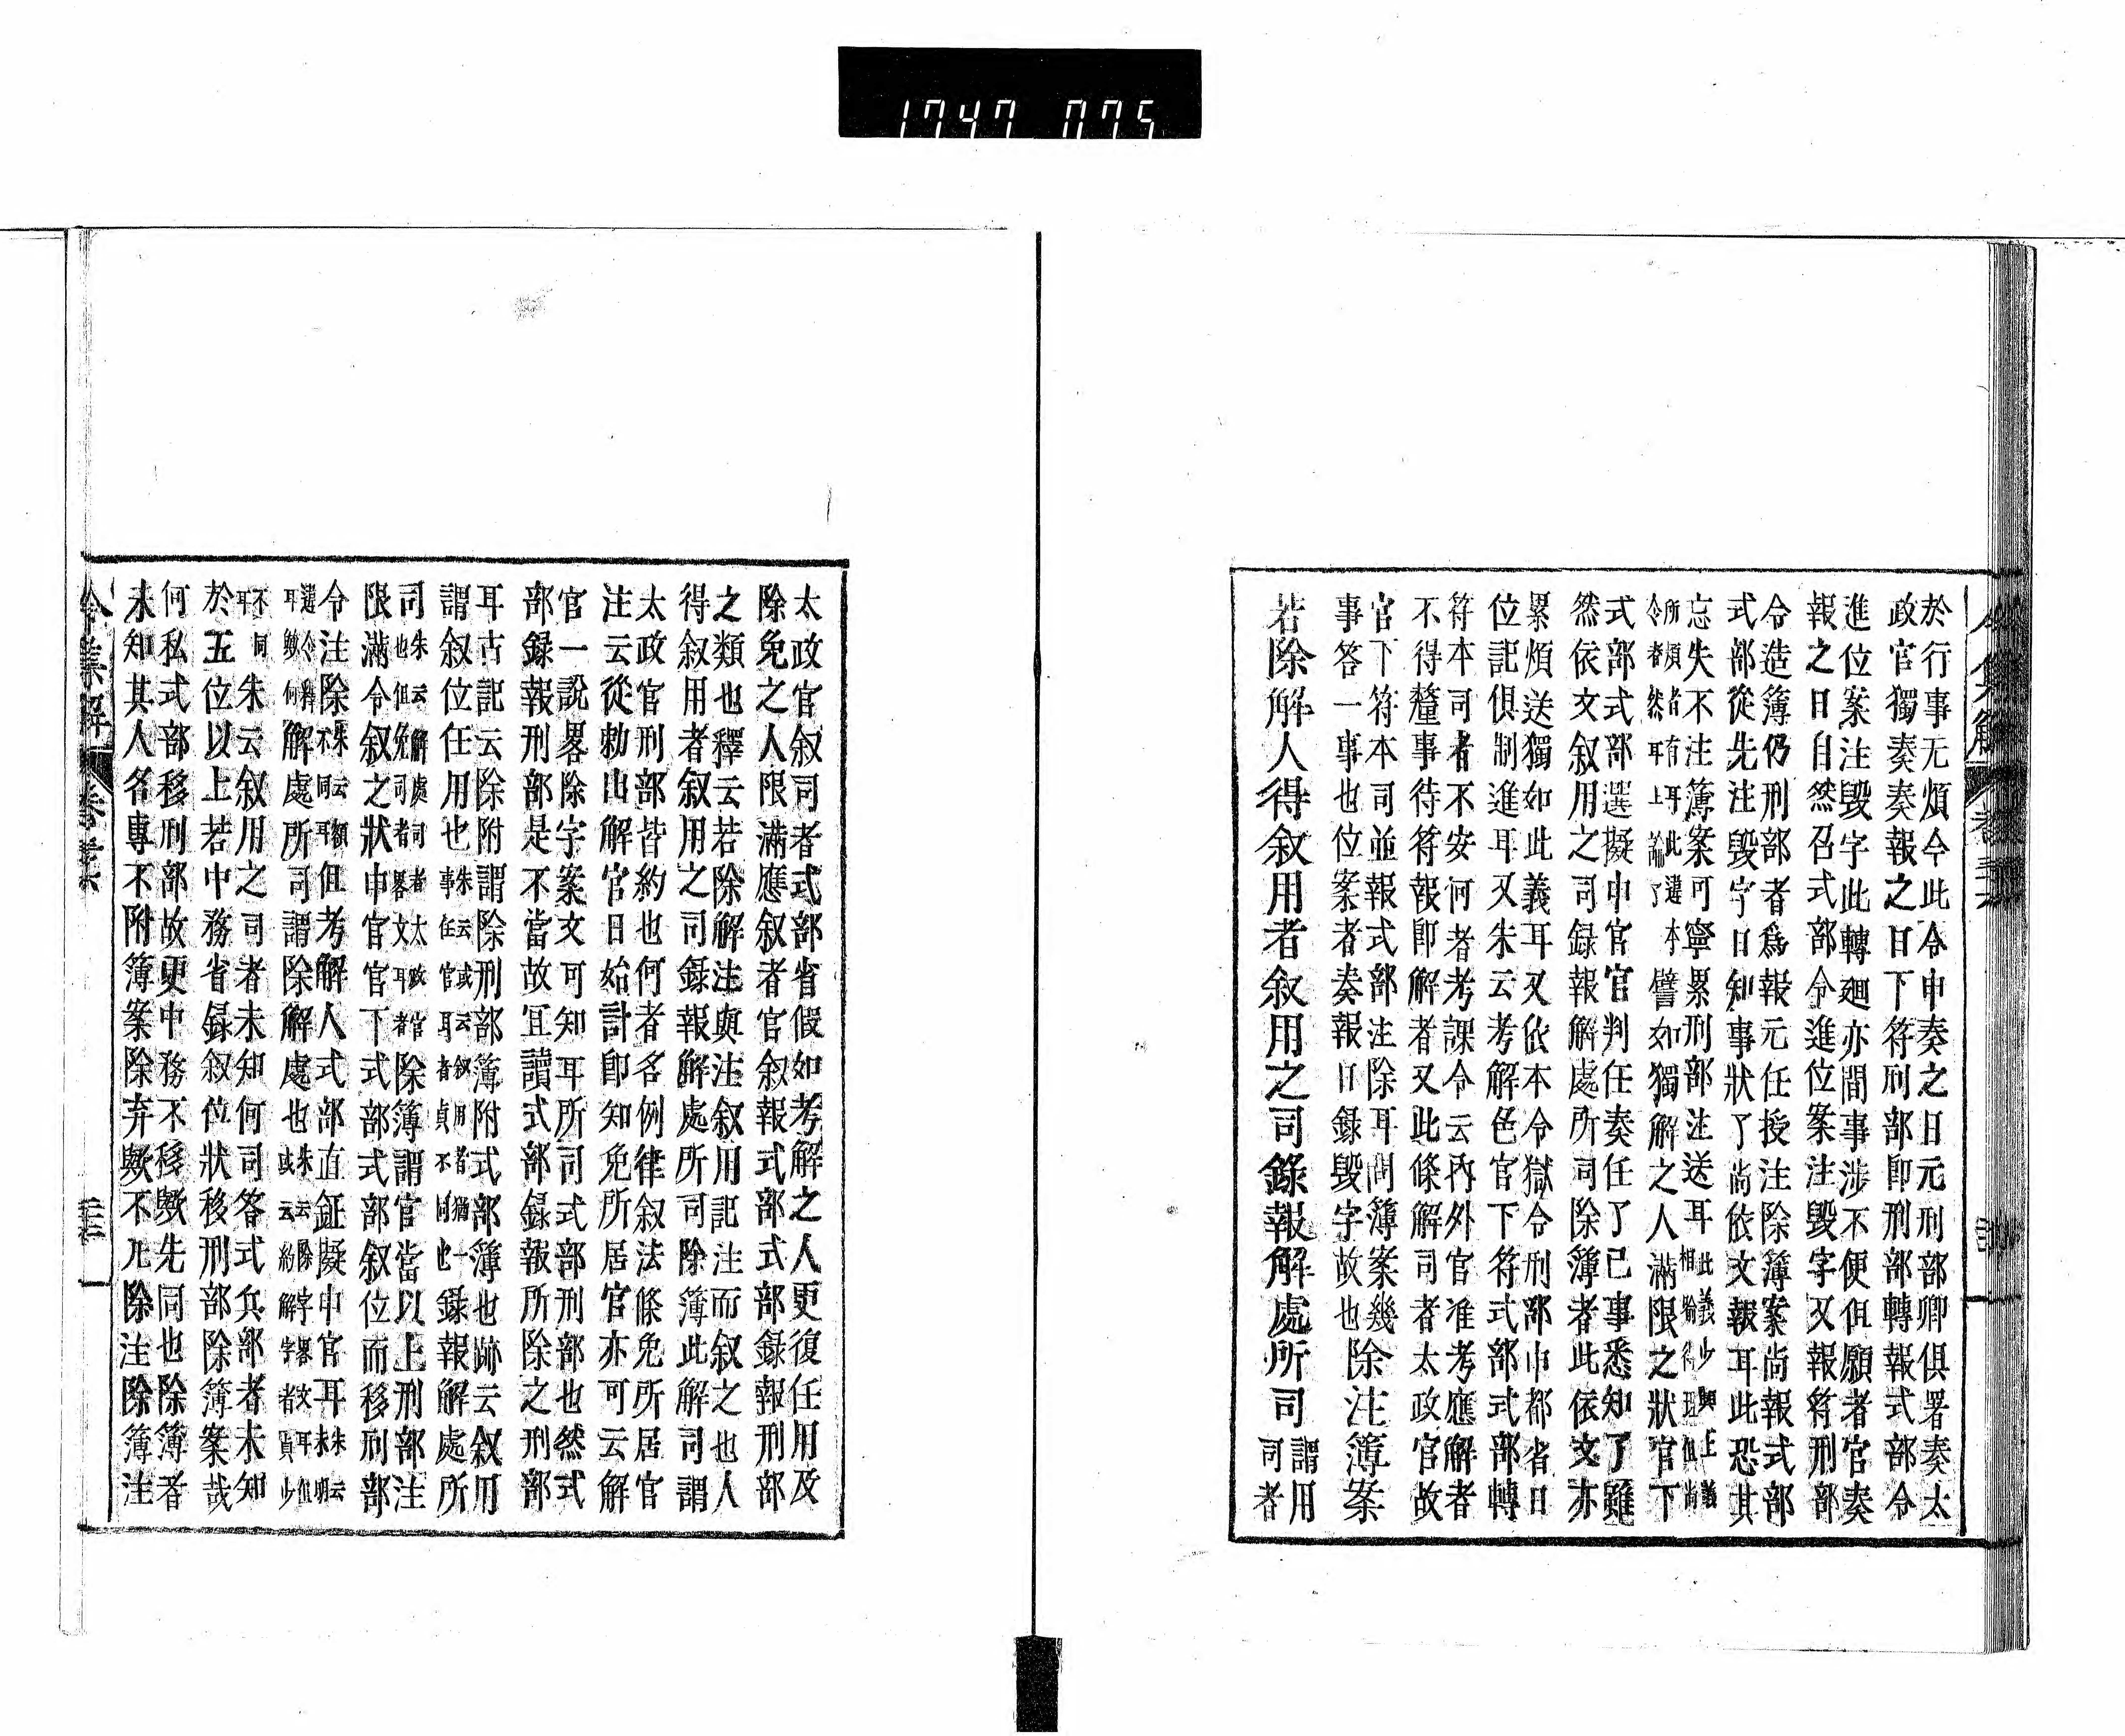 1747 075
於行事无煩令此令申奏之日元刑部卿俱署奏太
政官獨奏奏報之日下符刑部卽刑部轉報式部令
進位案注毀字此轉廻亦間事涉不便但願者官奏
報之日自然召式部令進位案注毀字又報符刑部
令造簿仍刑部者爲報元任授注除簿案尙報式部
式部從先注毀字日知事狀了尙依文報耳此恐其
忘失不注簿案可寧累刑部注送耳
此義少與上義
所煩者有耳此違本
令者然耳上論了
譬如獨解之人滿限之狀官下
式部式部選擬申官官判任奏任了已事悉知了雖
然依文叙用之司録報解處所司除簿者此依文亦
累煩送獨如此義耳又依本令獄令刑部申都省日
位記俱制進耳又朱云考解色官下符式部式部轉
符本司者不安何者考課令云內外官准考應解者
不得釐事待符報卽解者又此條解司者太政官故
官下符本司並報式部注除耳問簿案幾
事答一事也位案者奏報日錄毀字故也
除注簿案
若除解人得叙用者叙用之司錄報解處所司
謂用
司者
太政官叙司者式部省假如考解之人更復任用及
除免之人限滿應叙者官叙報式部式部錄報刑部
之類也釋云若除解注與注叙用記注而叙之也人
得叙用者叙用之司錄報解處所司除簿此解司謂
太政官刑部皆約也何者名例律叙法條免所居官
注云從勅出解官日始計卽知免所居官亦可云解
官一說畧除字案文可知耳所司式部刑部也然式
部録報刑部是不當故冝讀式部録報所除之刑部
耳古記云除附謂除刑部簿附式部簿也跡云叙用
謂叙位任用也
朱云或云叙用者猶一
事任官耳者貞不同也
録報解處所
司
朱云解處司者太政官
也但免司者畧文耳者
除簿謂官當以上刑部注
限滿令叙之狀申官官下式部式部叙位而移刑部
令注除
朱云云額
不同耳
但考解人式部直鉦擬申官耳
朱云
未明
選令釋
耳歟何
解處所司謂除解處也
朱云除字畧文耳但
或云約解字者貞少
不同
耳
朱云叙用之司者未知何司答式兵部者未知
於五位以上若中務省録叙位狀移刑部除簿案哉
何私式部移刑部故更中務不移歟先同也除簿者
未知其人名專不附簿案除弃歟不凡除注除簿注
令集解 卷